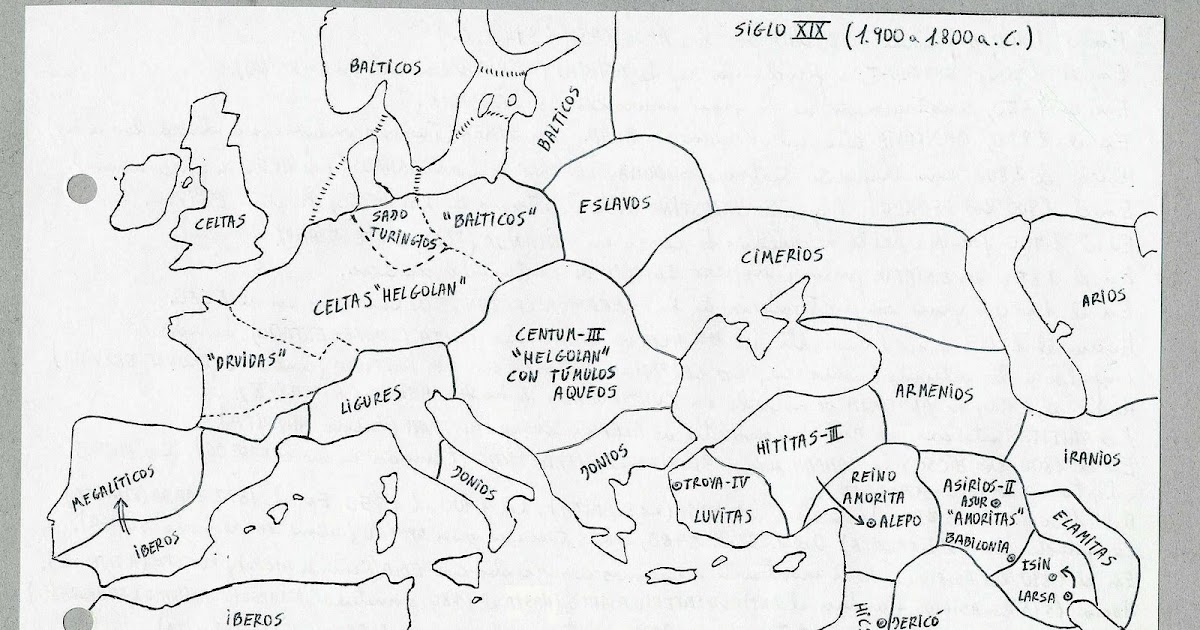 SiGLO XIX (1.900 a 1.800 a. C.)
BALTICOS
BALTICOS
CELTAS
SADO
TURINGIOS
"BALTICOS"
ESLAVOS
CIMERIOS
ARIOS
CELTAS "HELGOLAN"
"DRVIDAS"
CENTUM-III
"HELGOLAN"
CON TÚMULOS
AQUEOS
LIGURES
ARMENIOS
IRANIOS
MEGALÍTICOS
IBEROS
JONIOS
JONIOS
HITITAS-III
TROYA-IV
LUVITAS
REINO
AMORITA
ALEPO
ASIRIOS-II
ASUR
"AMORITAS"
BABILONIA
ELAMITAS
ISIN
LARSA
IBEROS
HICS
JERICÓ